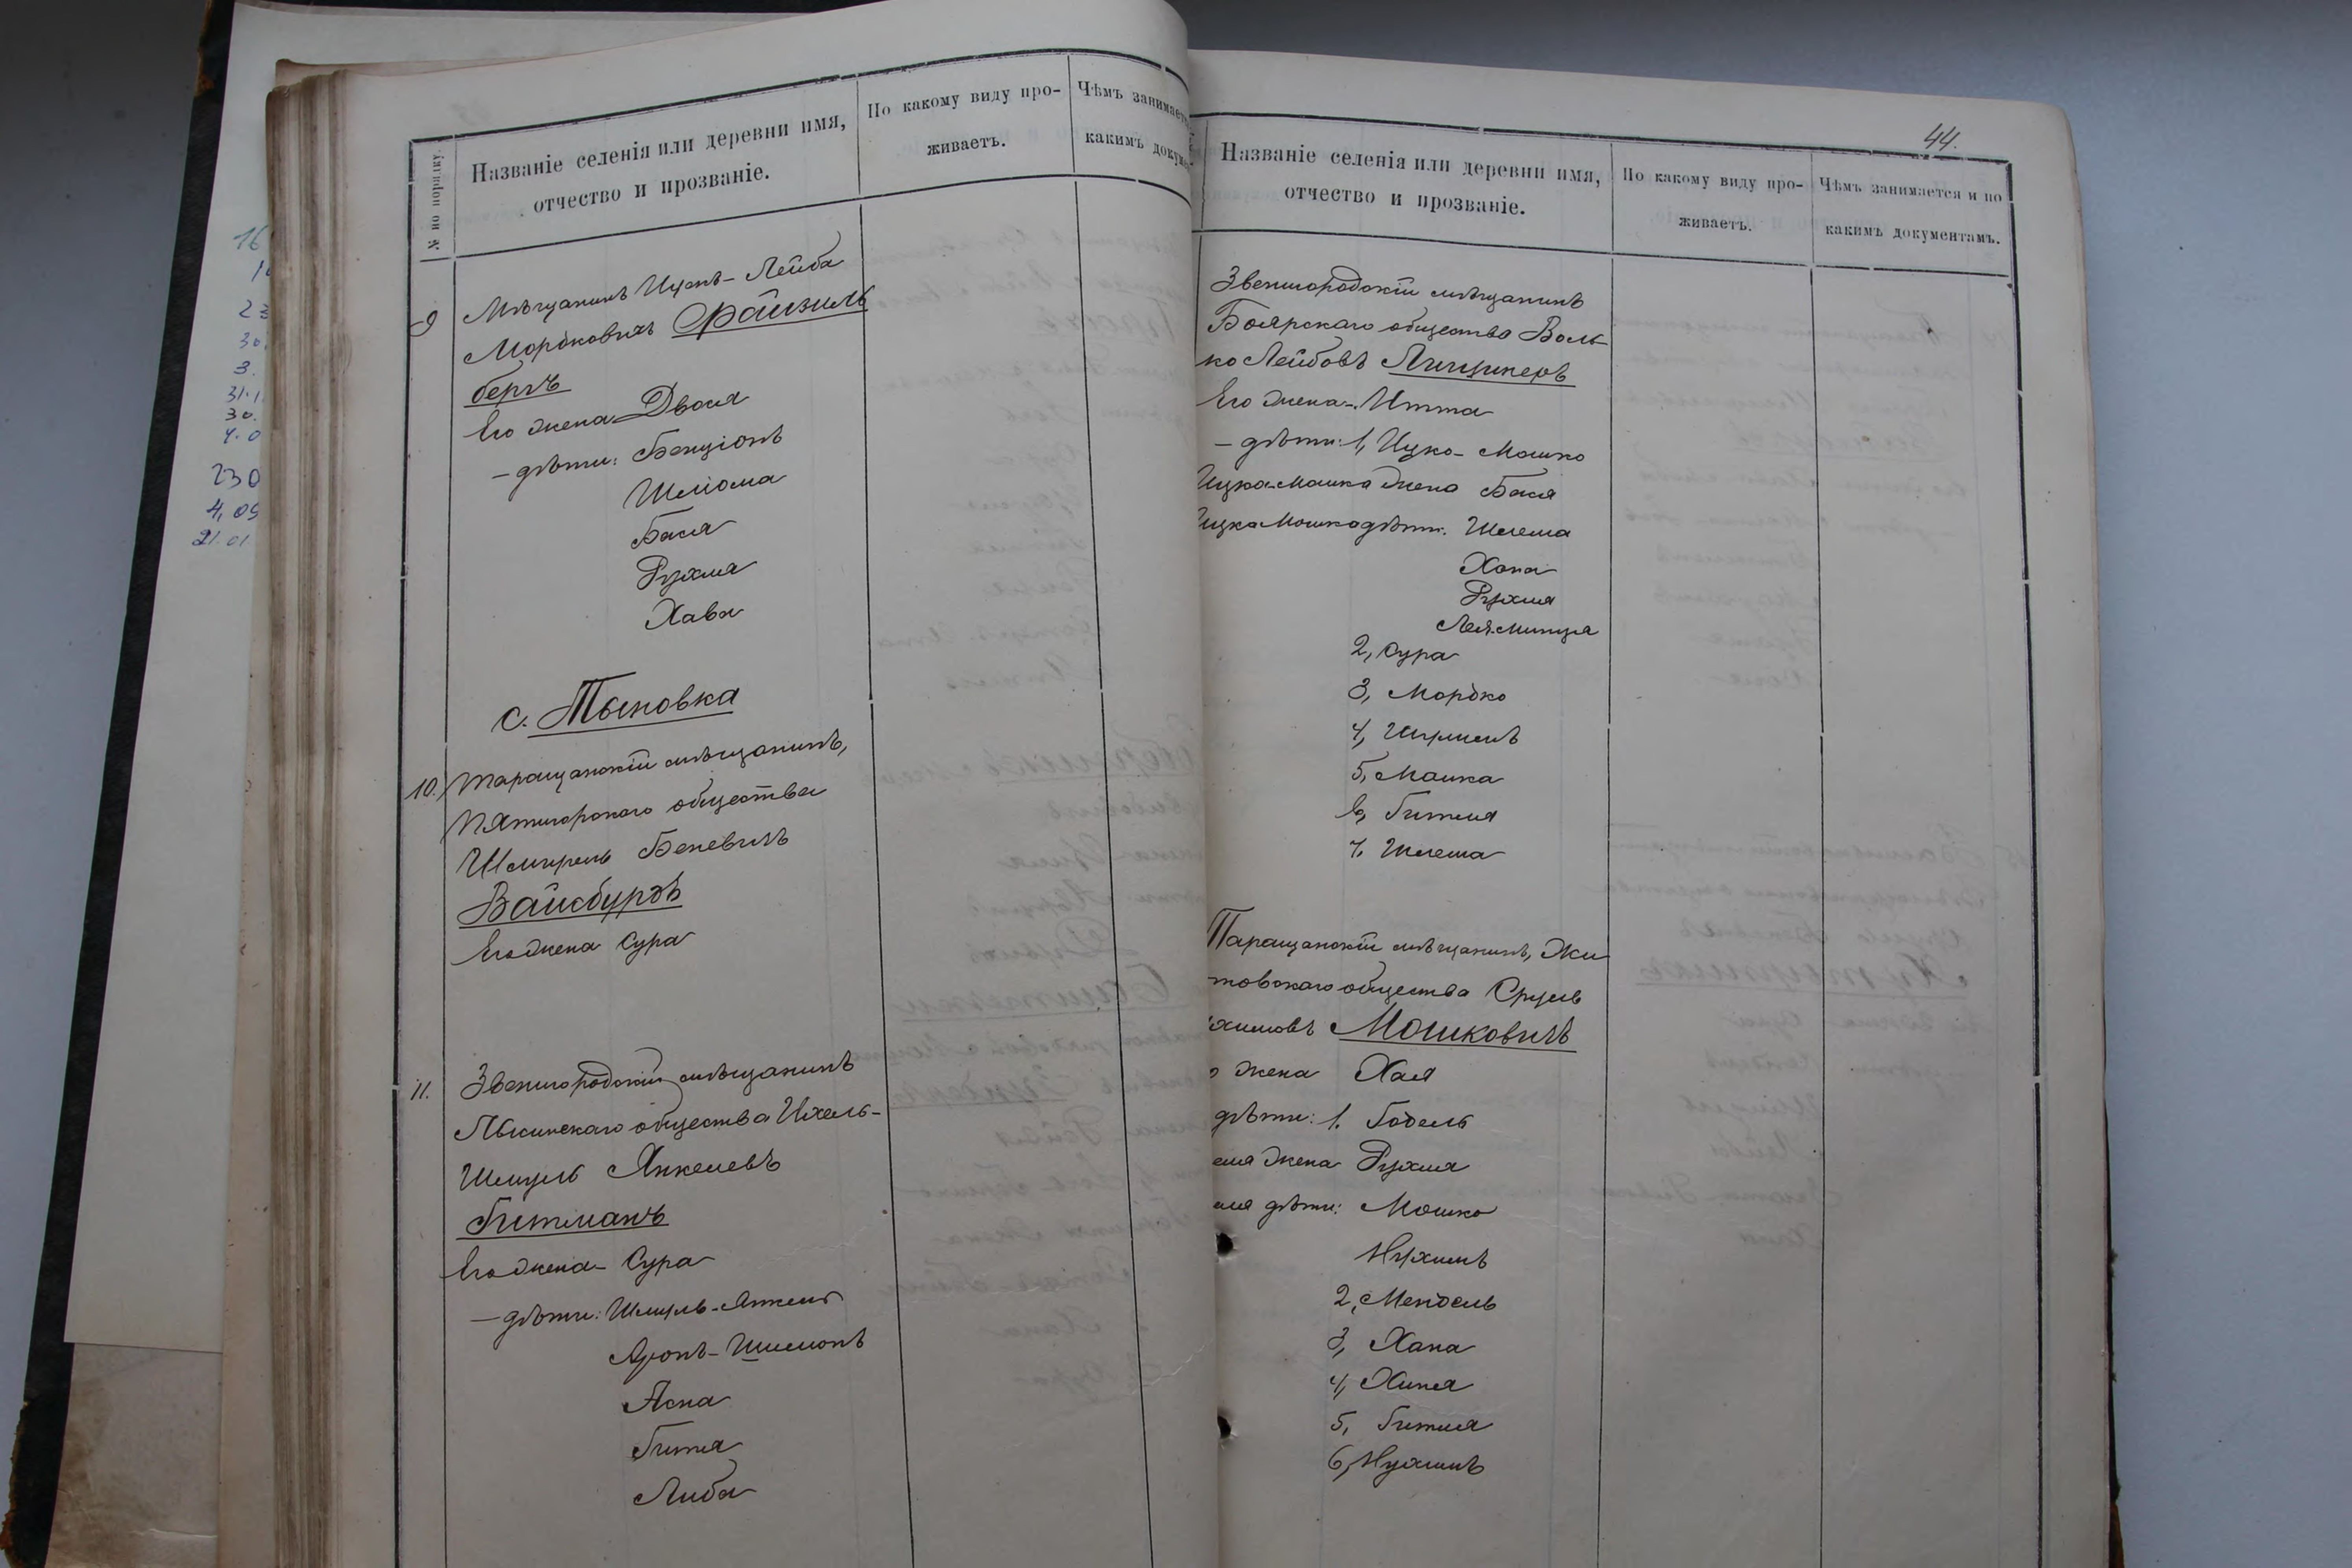 № по порядку.
Названіе селенія или деревни имя,
отчество и прозваніе.
По какому виду про-
живаетъ.
Чѣмъ занимает
какимъ докум
9
Мѣщанинъ Ицекъ-Лейба
Мордковичъ Файвиль
бергъ
Его жена Двося
- дѣти: Бенціонъ
Шліома
Бася
Рухля
Хава
с. Тыновка
10.
Таращанскій мѣщанинъ,
Пятигорскаго общества
Шмерель Беневичъ
Вайсбурдъ
Его жена Сура
11.
Звенигородскій мѣщанинъ
Лысинскаго общества Ихель-
Шмуль Янкелевъ
Гитманъ
Его жена - Сура
- дѣти: Шмуль-Янкель
Аронъ-Шимонъ
Асна
Гитя
Либа
44.
Названіе селенія или деревни имя,
отчество и прозваніе.
По какому виду про-
живаетъ.
Чѣмъ занимается и по
какимъ документамъ.
Звенигородскій мѣщанинъ
Боярскаго общества Воль-
ко Лейбовъ
Его жена - Итта
- дѣти: 1, Ицко-Мошко
Ицка-Мошка жена Бася
Ицка Мошка дѣти. Шлема
Хана
Рухля
Лея-Минця
2, Сура
3, Мордко
4, Шулимъ
5, Малка
6, Гитля
7. Шлема
Таращанскій мѣщанинъ, Жи
товскаго общества Сруль
химовъ Мошковичъ
жена Хая
дѣти: 1. Годель
еля жена Рухля
еля дѣти: Мошко
Нухимъ
2, Мендель
3, Хана
4, Хиня
5, Гитля
6, Нухимъ
16
23
30
3.
31.1
30.
4.0
230
4,09
21.01